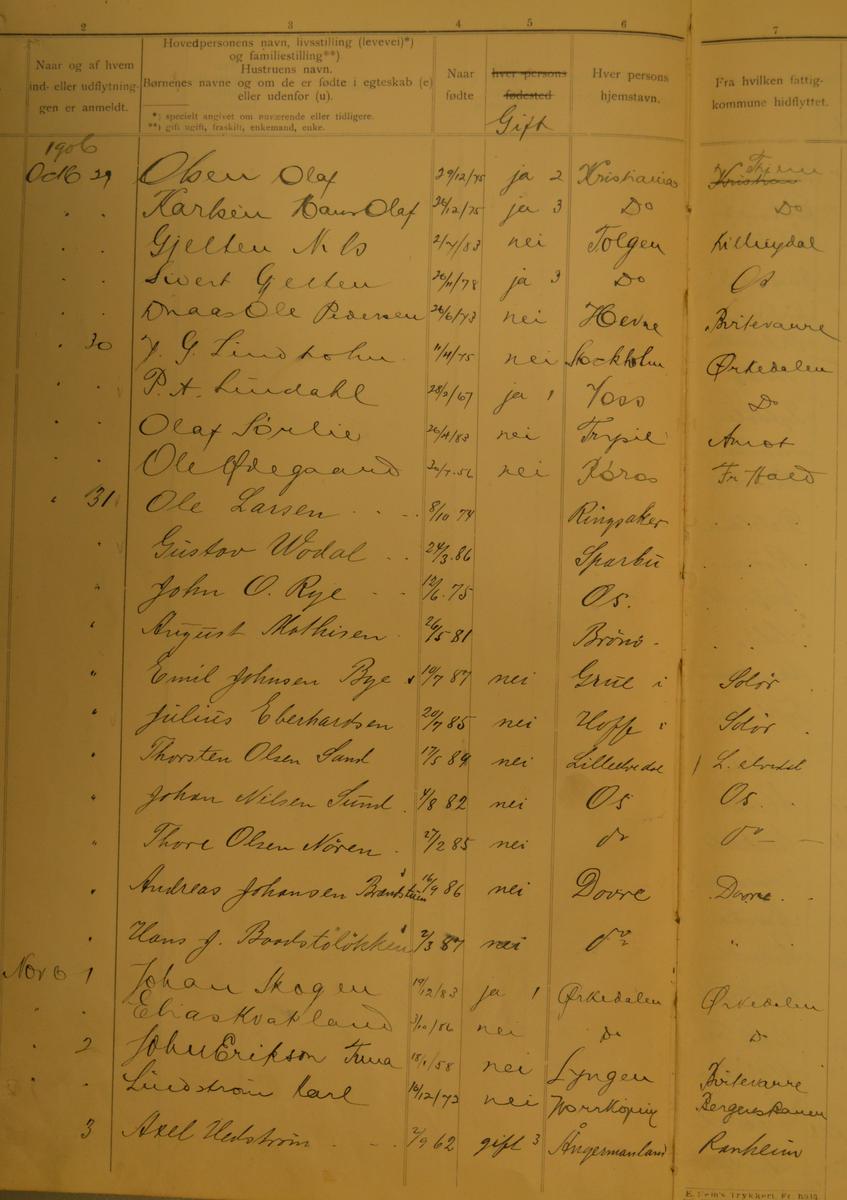 2 3 4 5 6 7
Naar og af hvem ind- eller udflytnin- gen er anmeldt.
Hovedpersonens navn, livsstilling (levevei)*)
og familiestilling**)
Hustruens navn.
Børnenes navne og om de er fødte i egteskab (e)
eller udenfor (u).
*) specielt angivet om nuværende eller tidligere.
**) gift ugift, fraskilt, enkemand, enke.
Naar fødte
hver persons fødested
Gift
Hver persons hjemstavn.
Fra hvilken fattig- kommune hidflyttet.
1906
Octb 29 Olsen Olaf 29/12/75 ja 2 Kristiania
" " Karlsen Hans Olaf 26/12/75 ja 3 Do Do
" " Gjelten Nils 2/4/83 nei Tolgen Lilleydal
" " Sivert Gjelten 20/11/78 ja 3 Do Os
" " Ole Pedersen nei Hevne
" 30 J. G. Lindholm 11/4/75 nei Stockholm Ørkedalen
" " P. A. Lindahl 28/2/67 ja 1 Voss Do
" " Olaf Sørlie 26/4/83 nei Trysil Amot
" " Ole Ødegaard nei Røros Fr Hald
" 31 Ole Larsen 8/10 74 Ringsaker
" Gustav Wodal 24/3.86 Sparbu
" John O. Rye 12/6.75 Os.
" August Mathisen 26/5 81 Brøns
" Emil Johnsen Bye 14/7 87 nei Grue i Solør
" Julius Eberhardsen 20/7 85 nei Hoff i Solør
" Thorsten Olsen Sand 17/5 89 nei Lilleelvedal L. elvedal
" Johan Nilsen Sund 4/8 82 nei Os Os
" Thore Olsen Nøren 27/2 85 nei do do
" Andreas Johansen 16/9 86 nei Dovre Dovre
" Hans J. Baadstøløkken 2/3 87 nei do "
Novb 1 Johan Skogen 19/12/83 ja 1 Ørkedalen Ørkedalen
" Elias Kvatland 3/10/86 nei Do Do
" 2 John Erikson 18/1/58 nei Lyngen
" " Lindstrøm Karl 16/12/72 nei Norrköping
3 Axel Hedstrøm 2/9 62 gift 3 Ångermanland Ranheim